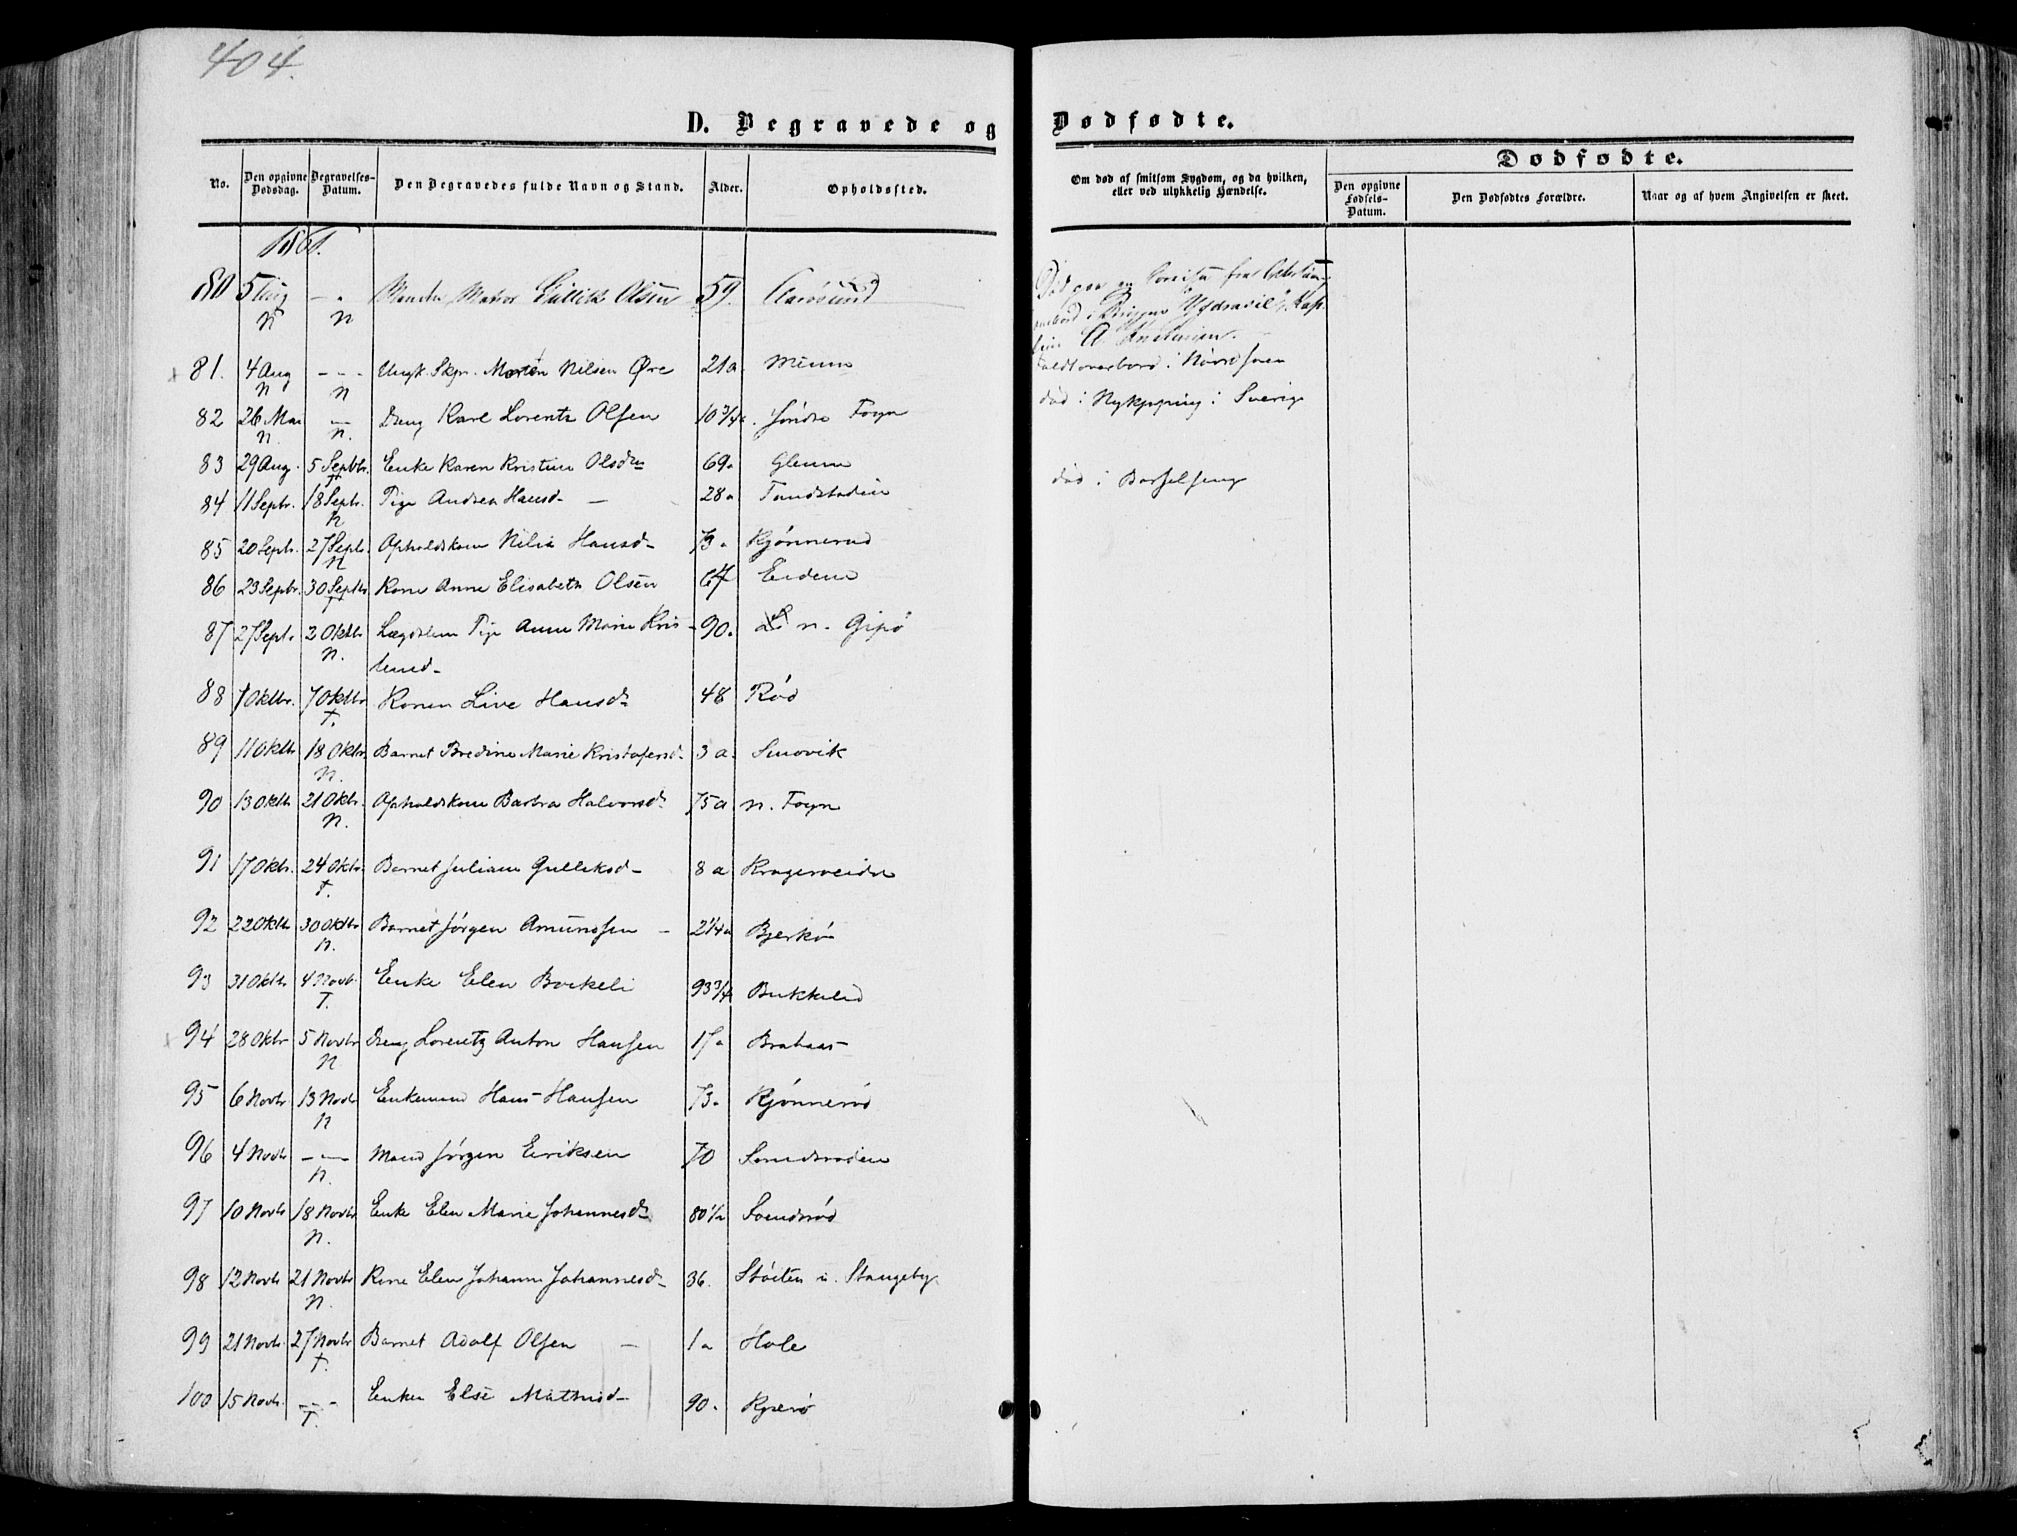 404.
D. Begravede og Dødfødte.
Dødfødte.
No.
Den opgivne Dødsdag.
Begravelses-Datum.
Den Begravedes fulde Navn og Stand.
Alder.
Opholdssted.
Om død af smitsom Sygdom, og da hvilken, eller ved ulykkelig Hændelse.
Den opgivne Fødsels-Datum.
Den Dødfødtes Forældre.
Naar og af hvem Angivelsen er skeet.
80 5 Aug N — N Matros Gullik Olsen 59. Aarøsund
Død paa en
A
81. 4 Aug N - - - N Ungk. Skpr. Morten Nilsen Øre 21 a
faldt overbord i Nordsøen
82 26 Mai N. — N. Dreng Karl Lorentz Olsen 10 3/4 a. søndre Foyn
død i Nykjøping i Sverig
83 29 Aug. 5 Septbr. T Enke Karen Kristine Olsdr 69a
84 11 Septr. 18 Septr. N Pige Andrea Hansd- — 28a
død i Barselseng
85 20 Septr. 27 Septr. N Opholdskone Nilia Hansd- 73a Kjønnerud
86 23 Septbr. 30 Septbr T Kone Anne Elisabeth Olsen 67
87 27 Septr. 2 Oktbr N. Lægdslem Pige Anne Marie Kris- 90. n. Gipø
tensd-
88 1 Oktbr. 7 Oktbr T. Konen Live Hansdr 48 Rød
89 11 Oktbr 18 Oktbr. N. Barnet Bredine Marie Kristofersd- 3 a. Smovik
90 13 Oktb 21 Oktr. N. Opholdskone Barbra Halvorsdr 75 a n. Foyn
91 17 Oktr. 24 Oktbr T. Barnet Juliane Gulliksd- 8 a
92 22 Oktb 30 Oktbr N. Barnet Jørgen Amundsen — 2 1/4 a Bjerkø
93 31 Oktb 4 Novb. T. Enke Elen 93 3/4
94 28 Oktbr 5 Novbr N Dreng Lorentz Anton Hansen 17a Brahaas
95 6 Novbr 13 Novbr N Enkemand Hans Hansen 73. Kjønnerød
96 4 Novbr — N. Mand Jørgen Eriksen 70
97 10 Novbr 18 Novbr N. Enke Elen Marie Johannesdr 80 1/2 Svendsrød
98 12 Novbr 21 Novbr N. Kone Elen Johanne Johannesd- 36. Støiten u. Stangeby
99 21 Novbr. 27 Novbr T. Barnet Adolf Olsen — 1a Hole
100 15 Novbr. - - - T. Enken Else 90.